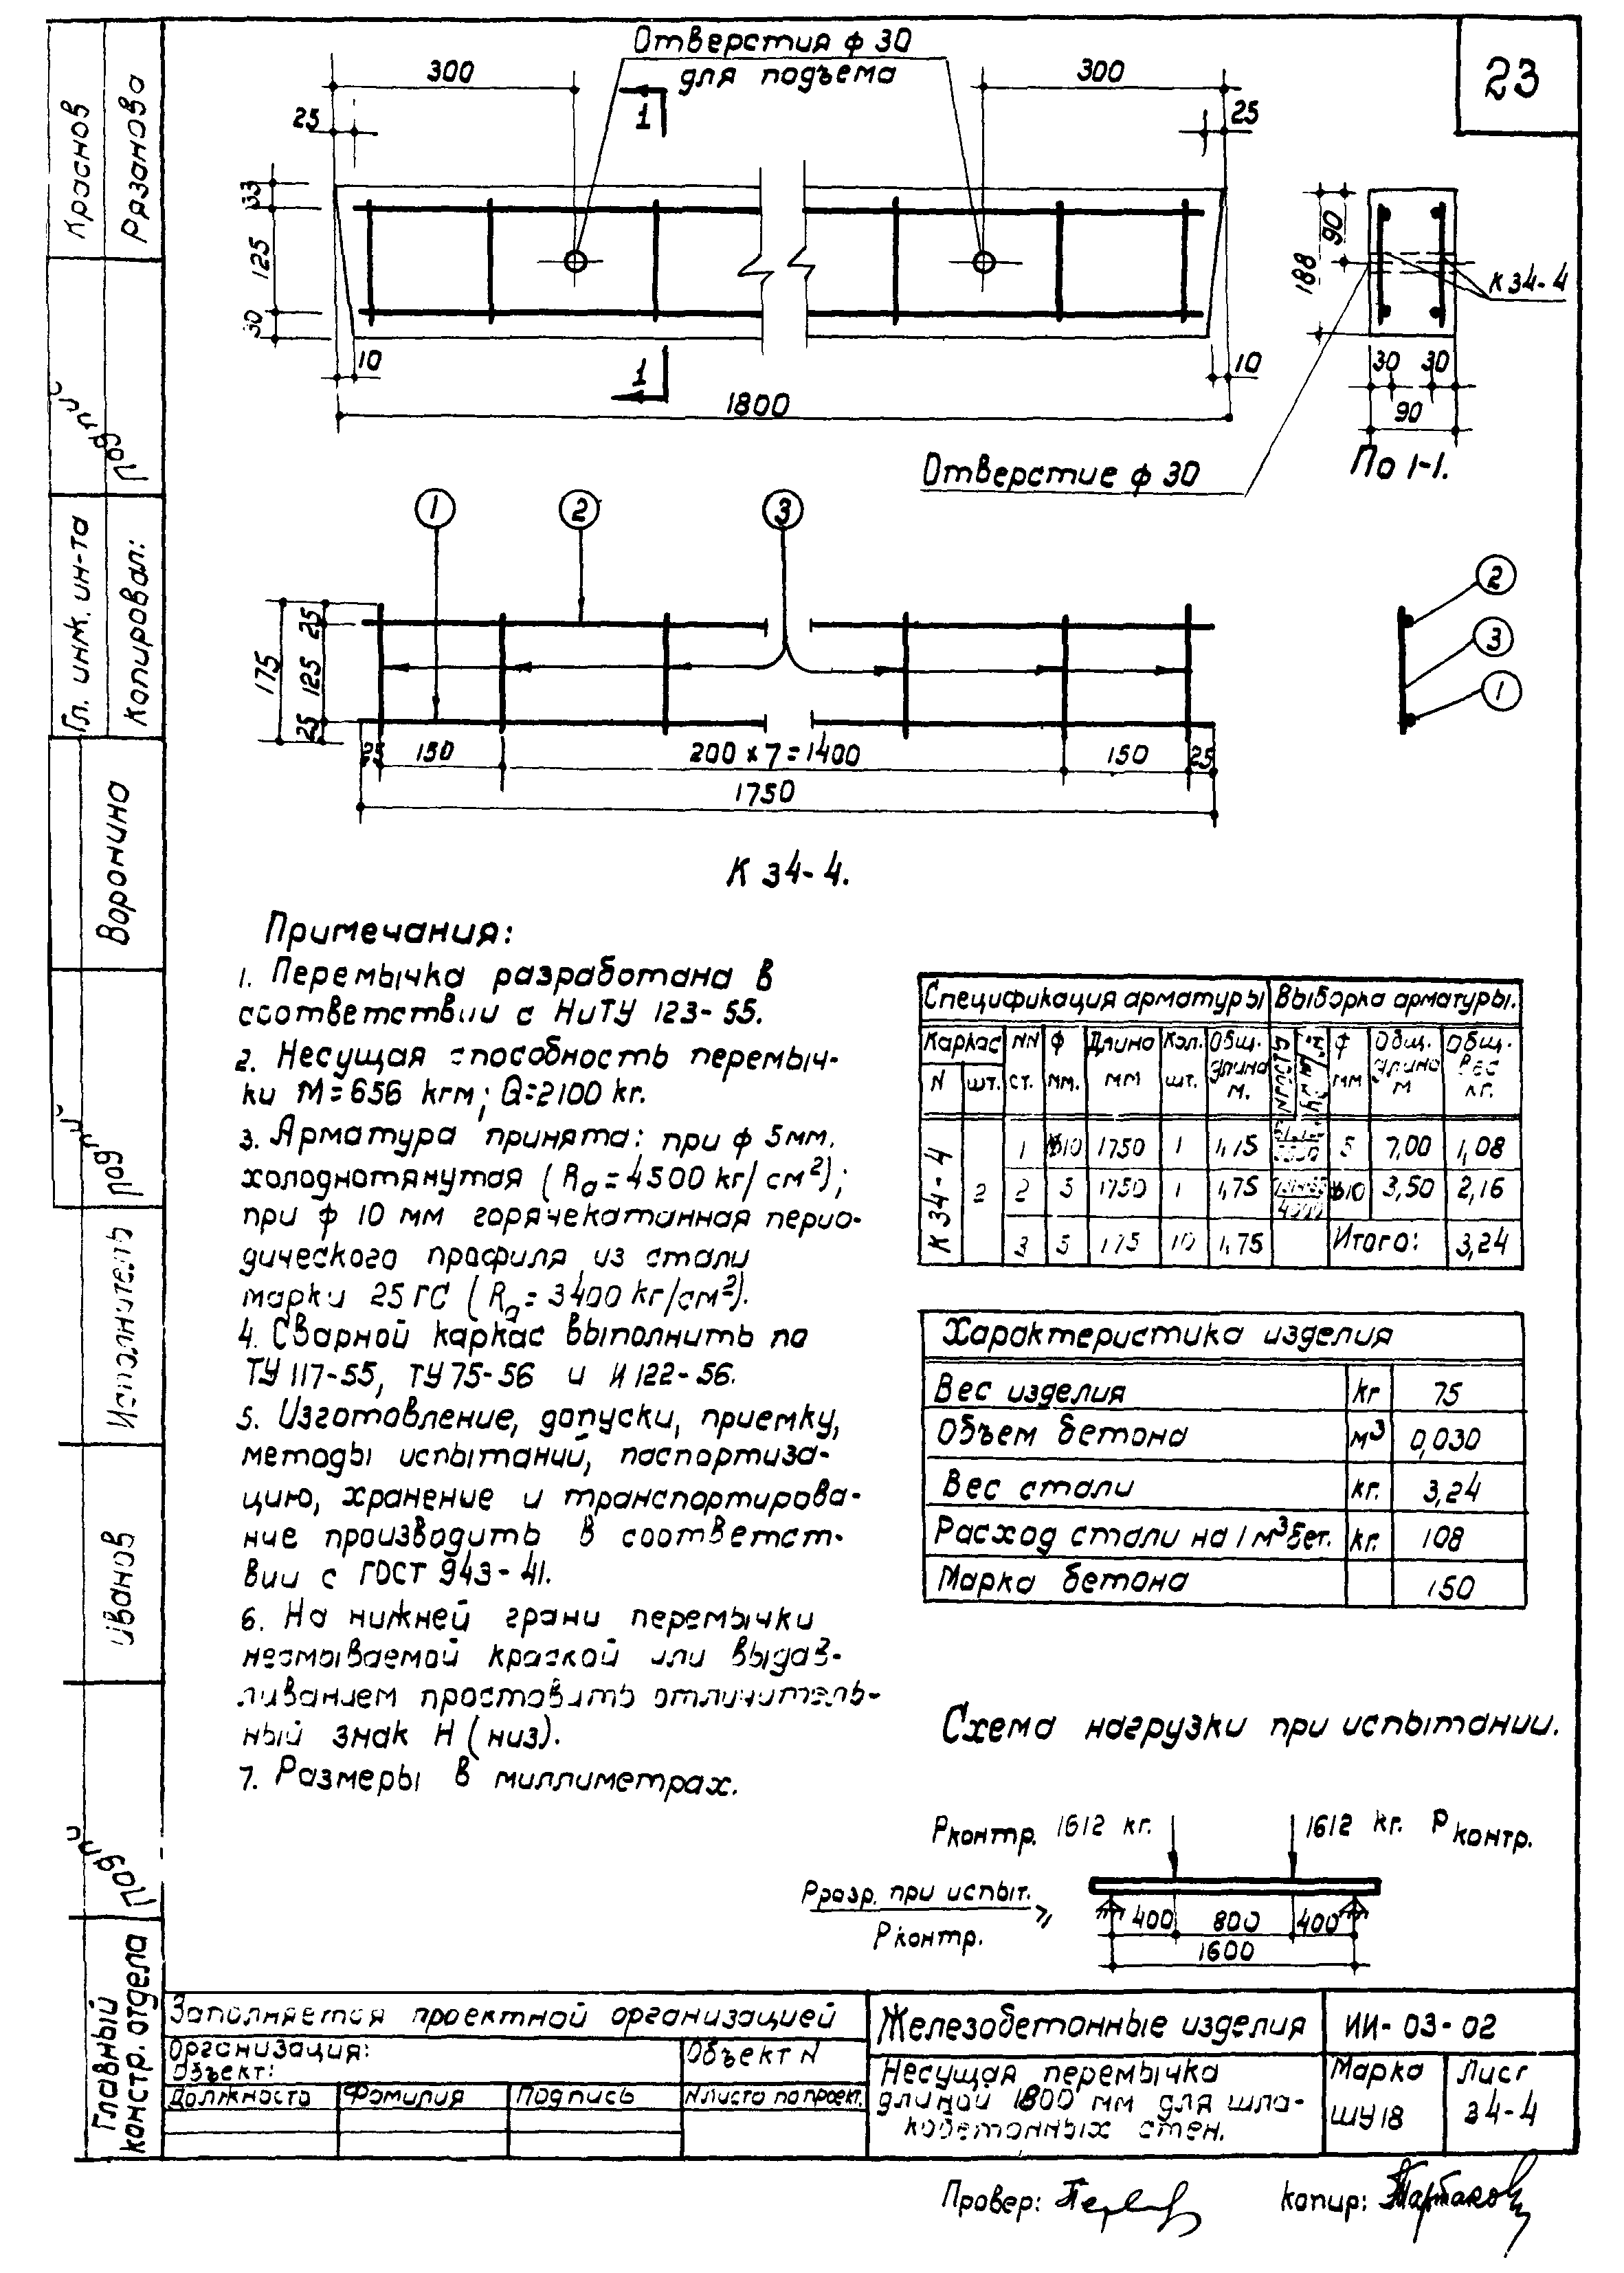 23
Отверстия ф 30
для подъема
300
300
25
25
1
33
125
30
10
10
1
1800
90
188
К 34-4
30
30
90
По 1-1.
Отверстие ф 30
1
2
3
25
125
25
175
25
150
200 х 7 = 1400
150
25
1750
2
3
1
К 34-4.
Примечания:
1. Перемычка разработана в
соответствии с НиТУ 123-55.
2. Несущая способность перемыч-
ки М=656 кгм; Q=2100 кг.
3. Арматура принята: при ф 5мм.
холоднотянутая (Rа=4500 кг/см²);
при ф 10 мм горячекатанная перио-
дического профиля из стали
марки 25 ГС (Rа=3400 кг/см²).
4. Сварной каркас выполнить по
ТУ 117-55, ТУ 75-56 и И 122-56.
5. Изготовление, допуски, приемку,
методы испытаний, паспортиза-
цию, хранение и транспортирова-
ние производить в соответст-
вии с ГОСТ 943-41.
6. На нижней грани перемычки
несмываемой краской или выдав-
ливанием проставить отличитель-
ный знак Н (низ).
7. Размеры в миллиметрах.
Спецификация арматуры Выборка арматуры.
Каркас NN ф Длина Кол. Общ. ф Общ. Общ.
N шт. ст. мм. мм шт. длина м. мм длина м вес кг.
К 34-4 2
1 ф10 1750 1 1,75 5 7,00 1,08
2 5 1750 1 1,75 ф10 3,50 2,16
3 5 175 10 1,75 Итого: 3,24
Характеристика изделия
Вес изделия кг 75
Объем бетона м3 0,030
Вес стали кг. 3,24
Расход стали на 1 м3 бет. кг. 108
Марка бетона 150
Схема нагрузки при испытании.
Рконтр. 1612 кг. 1612 кг. Рконтр.
Рразр. при испыт.
Рконтр.
⩾
400 800 400
1600
Заполняется проектной организацией
Организация:
Объект:
Объект N
Должность Фамилия Подпись N листа по проект.
Железобетонные изделия
ИИ-03-02
Несущая перемычка
длиной 1800 мм для шла-
кобетонных стен.
Марка
ШУ18
Лист
34-4
Провер:
Копир:
Краснов
Рязанова
Гл. инж. ин-та
Копировал:
Воронина
Исполнитель
Иванов
Главный
констр. отдела